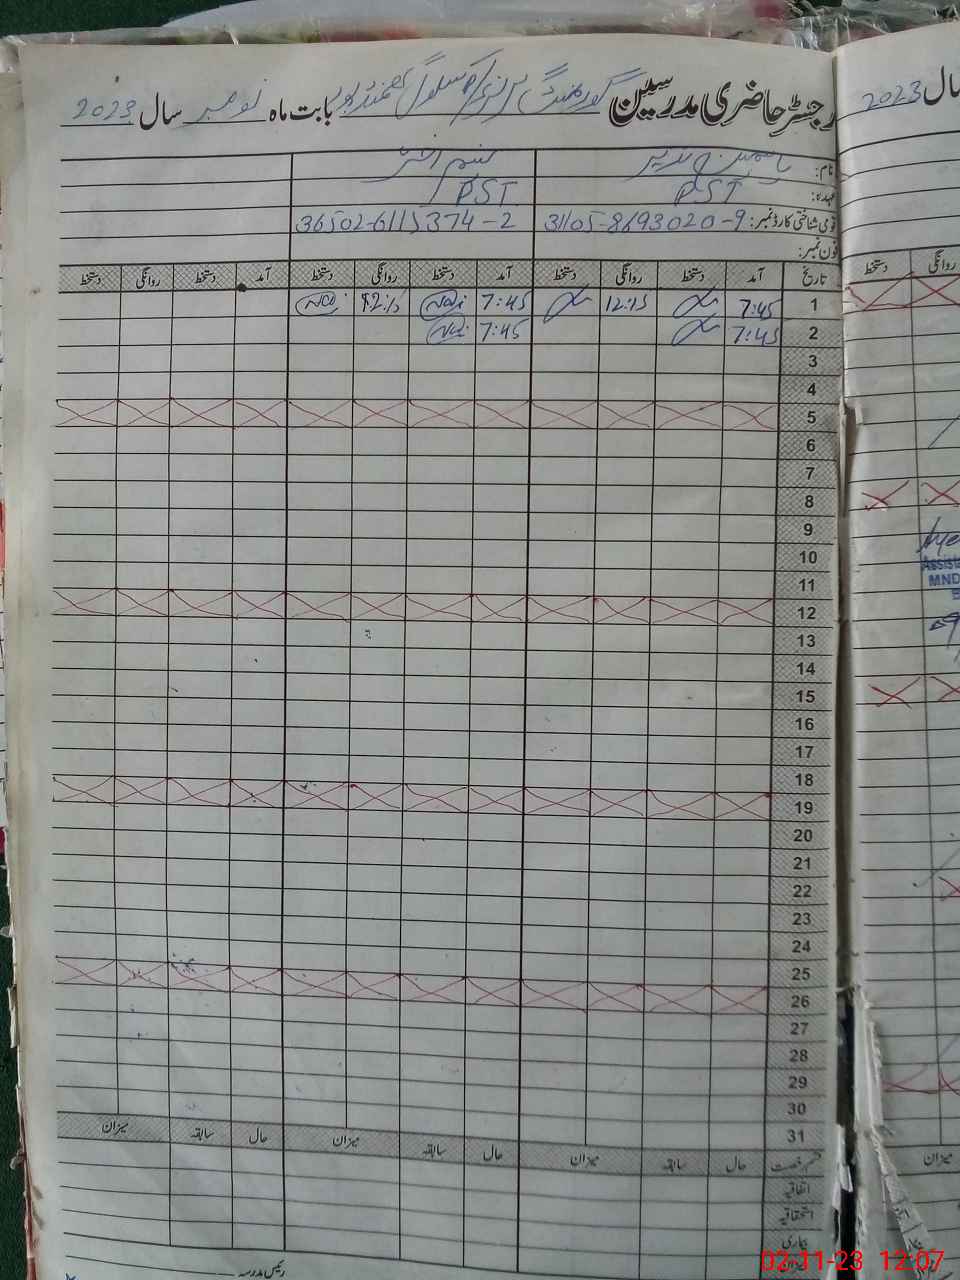 رجسٹر حاضری مدرسین گورنمنٹ بابت ماہ نومبر سال 2023
نام: یاسمین نذیر نسیم اختر
عہدہ: PST PST
قومی شناختی کارڈ نمبر: 31105-8693020-9 36502-6115374-2
فون نمبر:
تاریخ آمد دستخط روانگی دستخط آمد دستخط روانگی دستخط آمد دستخط روانگی دستخط
1 7:45 12:15 7:45 12:15
2 7:45 7:45
3
4
5
6
7
8
9
10
11
12
13
14
15
16
17
18
19
20
21
22
23
24
25
26
27
28
29
30
31
قسم رخصت حال سابقہ میزان حال سابقہ میزان حال سابقہ میزان
اتفاقیہ
استحقاقیہ
بیماری
رئیس مدرسہ
سال 2023
روانگی دستخط
Assista
MND
میزان
02-11-23 12:07